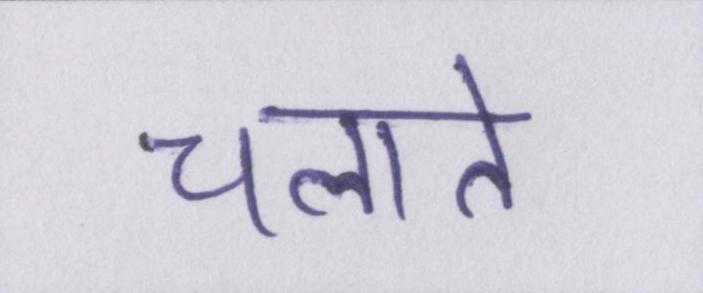 चलाते